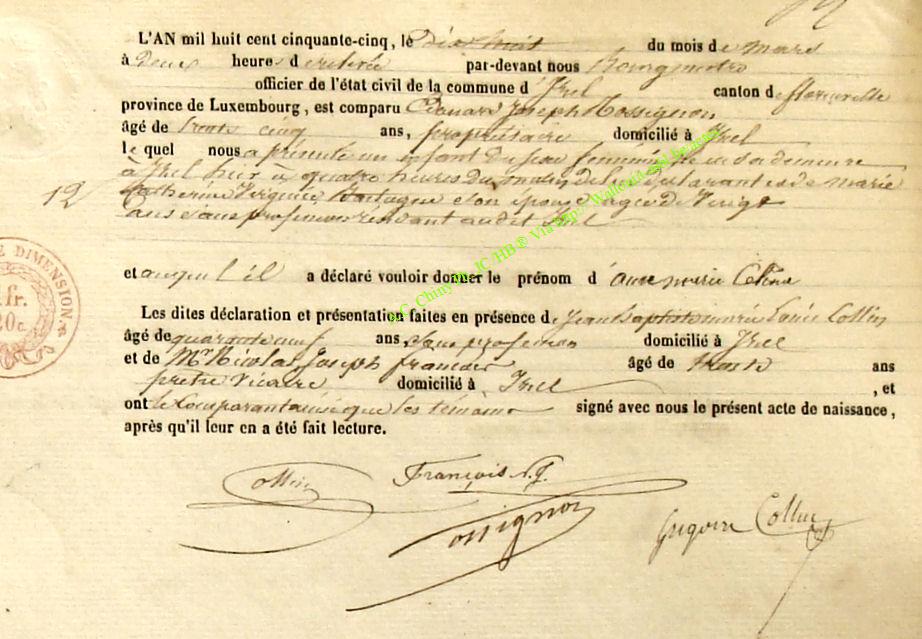 L'AN mil huit cent cinquante-cinq, le dix huit du mois de mars
à Deux heures de relevée par-devant nous Bourgmestre
officier de l'état civil de la commune d'Izel canton de florenville
province de Luxembourg, est comparu Edouard Joseph Rossignon
âgé de trente cinq ans, propriétaire domicilié à Izel
le quel nous a présenté un enfant du sexe féminin né en sa demeure
à Izel hier à quatre heures du matin de lui déclarant et de marie
Catherine Virginie son épouse agée de Vingt
ans sans profession résidant audit Izel
12
E DIMENSION
fr.
20c
et auquel il a déclaré vouloir donner le prénom d'anne marie Celina
Les dites déclaration et présentation faites en présence de Jean Baptiste marie Collin
âgé de quarante neuf ans, sans profession domicilié à Izel
et de Mr Nicolas Joseph françois âgé de trente ans
prêtre vicaire domicilié à Izel , et
ont le Comparant ainsi que les témoins signé avec nous le présent acte de naissance,
après qu'il leur en a été fait lecture.
Collin François N.J.
Rossignon
Grégoire Collin